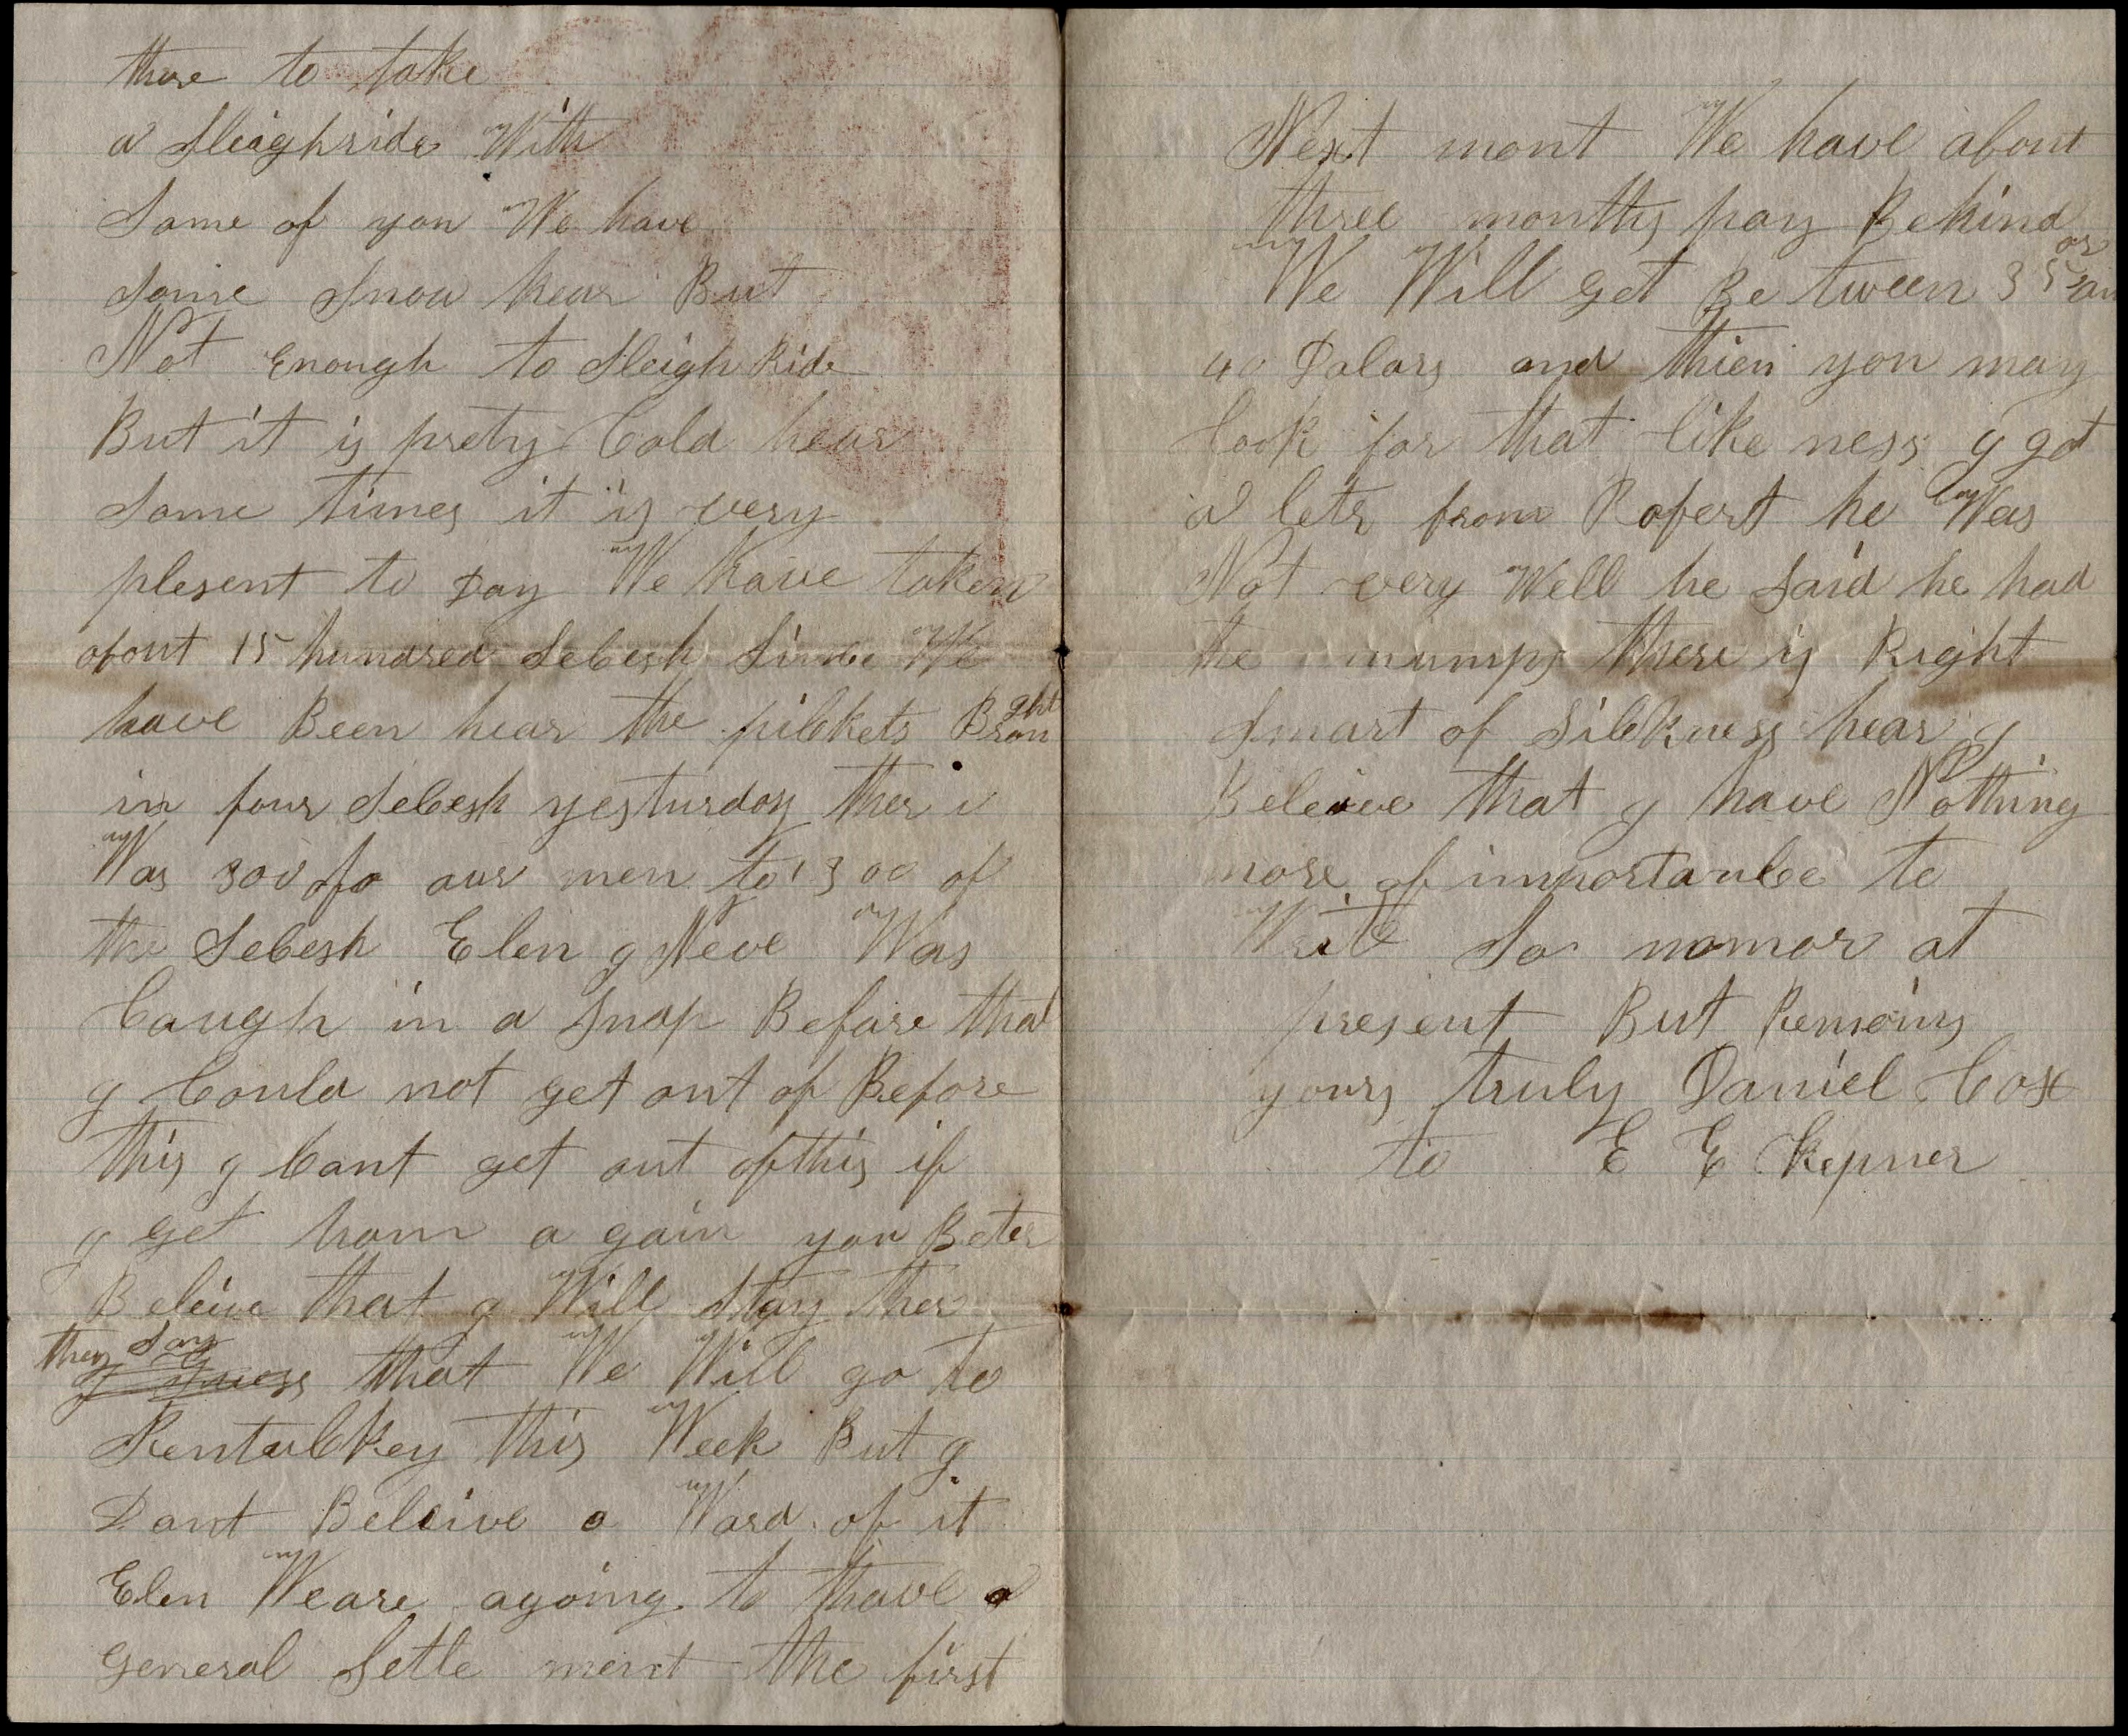 thare to take
a Sleighride With
Some of you We have
Some Snow hear But
Not Enough to Sleigh Ride
But it is prety Cold hear
Some times it is very
plesent to Day We have taken
about 15 hundred Secesh Since We
have Been hear the pickets Brought
in four Secesh yesturday ther
Was 300 of our men to 1300 of
the Secesh Elen y Neve Was
Caugh in a Snap Before that
y Could not get out of Before
this y Cant get out of this if
y get hom a gain you Beter
Beleive that y Will Stay ther
they Say y guess that We Will go to
Kentuckkey this Week But y
Dont Beleive a Word of it
Elen We are agoing to have a
General Setle ment the first
Next mont We have about
three months pay Behind
We Will get Be tween 35 or
40 Dolars and then you may
look for that like ness y got
a leter from Robert he Was
Not very Well he Said he had
the mumps there is Right
Smart of Sickness hear y
Beleive that y have Nothing
more of importance to
Write So nomor at
present But Remains
yours truly Daniel Cox
to E E Kepner